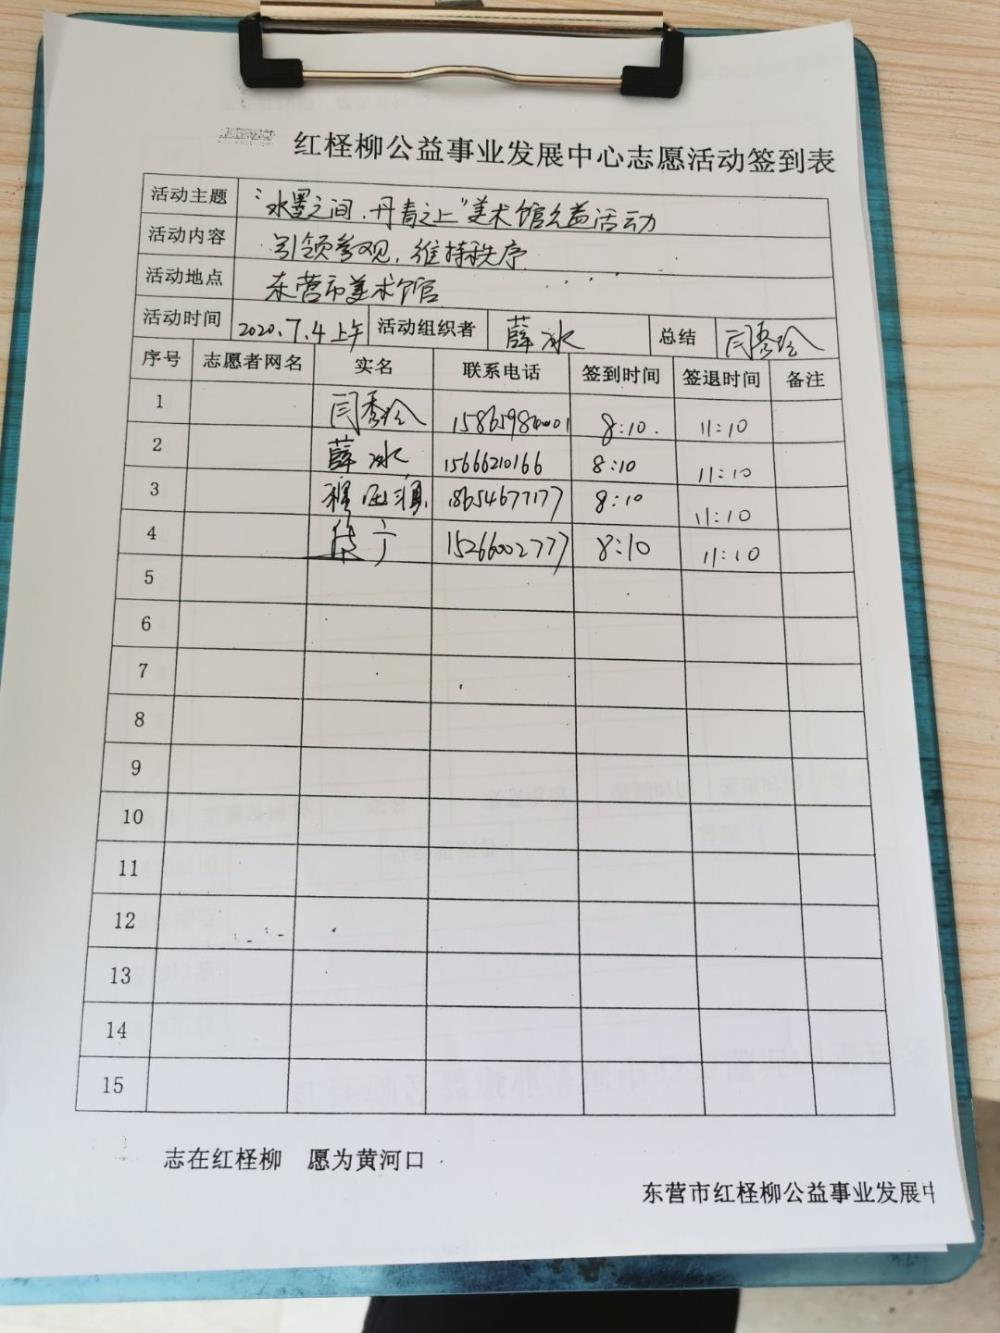 红柽柳公益事业发展中心志愿活动签到表
活动主题 "水墨之间,丹青之上"美术馆公益活动
活动内容 引领参观,维持秩序
活动地点 东营市美术馆
活动时间 2020.7.4上午 活动组织者 薛冰 总结 闫秀玲
序号 志愿者网名 实名 联系电话 签到时间 签退时间 备注
1 闫秀玲 8:10. 11:10
2 薛冰 15666210166 8:10 11:10
3 18654677177 8:10 11:10
4 15266002777 8:10 11:10
5
6
7
8
9
10
11
12
13
14
15
志在红柽柳 愿为黄河口
东营市红柽柳公益事业发展中